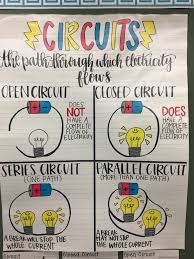 CIRCUITS
the path through which electricity
flows
OPEN CIRCUIT
DOES
NOT
HAVE A
COMPLETE
FLOW OF
ELECTRICITY
CLOSED CIRCUIT
DOES
HAVE A
COMPLETE
FLOW OF
ELECTRICITY
SERIES CIRCUIT
(ONE PATH)
A BREAK WILL STOP THE
WHOLE CURRENT
PARALLEL CIRCUIT
(MORE THAN ONE PATH)
A BREAK
MAY NOT
STOP THE
WHOLE CURRENT
Closed Circuit